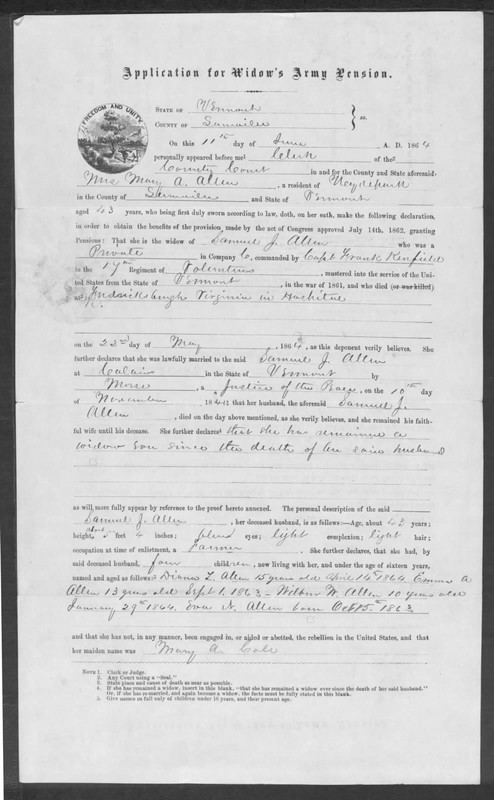 Application for Widow's Army Pension.
FREEDOM AND UNITY
STATE OF Vermont
COUNTY OF Lamoille } ss.
On this 11th day of June A. D. 1864
personally appeared before me Clerk of the
County Court in and for the County and State aforesaid,
Mrs Mary A. Allen, a resident of Hydepark
in the County of Lamoille and State of Vermont
aged 43 years, who being first duly sworn according to law, doth, on her oath, make the following declaration,
in order to obtain the benefits of the provision made by the act of Congress approved July 14th, 1862, granting
Pensions: That she is the widow of Samuel J. Allen who was a
Private in Company C, commanded by Capt Frank Kenfield
in the 17th Regiment of Volunteers, mustered into the service of the Uni-
ted States from the State of Vermont, in the war of 1861, and who died (or was killed)
at Fredricksburgh Virginia in Hospital
on the 22d day of May 1864, as this deponent verily believes. She
further declares that she was lawfully married to the said Samuel J. Allen
at Calais in the State of Vermont by
Morse, a Justice of the Peace, on the 10th day
of November 184 that her husband, the aforesaid Samuel J.
Allen, died on the day above mentioned, as she verily believes, and she remained his faith-
ful wife until his decease. She further declares that she has remained a
widow since the death of her said husband
as will more fully appear by reference to the proof hereto annexed. The personal description of the said
Samuel J. Allen, her deceased husband, is as follows:—Age, about 43 years;
height, about 5 feet 4 inches; blue eyes; light complexion; light hair;
occupation at time of enlistment, a Farmer. She further declares, that she had, by
said deceased husband, four children, now living with her, and under the age of sixteen years,
named and aged as follows: L. Allen 15 years old April 14th 1864. Emma A
Allen 13 years old Sept 1. 1863 – Wilbur W. Allen 10 years old
January 29th 1864. N. Allen born Oct 15th 1863
and that she has not, in any manner, been engaged in, or aided or abetted, the rebellion in the United States, and that
her maiden name was Mary A. Cole
NOTE 1. Clerk or Judge.
2. Any Court using a "Seal."
3. State place and cause of death as near as possible.
4. If she has remained a widow, insert in this blank, "that she has remained a widow ever since the death of her said husband."
Or, if she has re-married, and again become a widow, the facts must be fully stated in this blank.
5. Give names in full only of children under 16 years, and their present age.